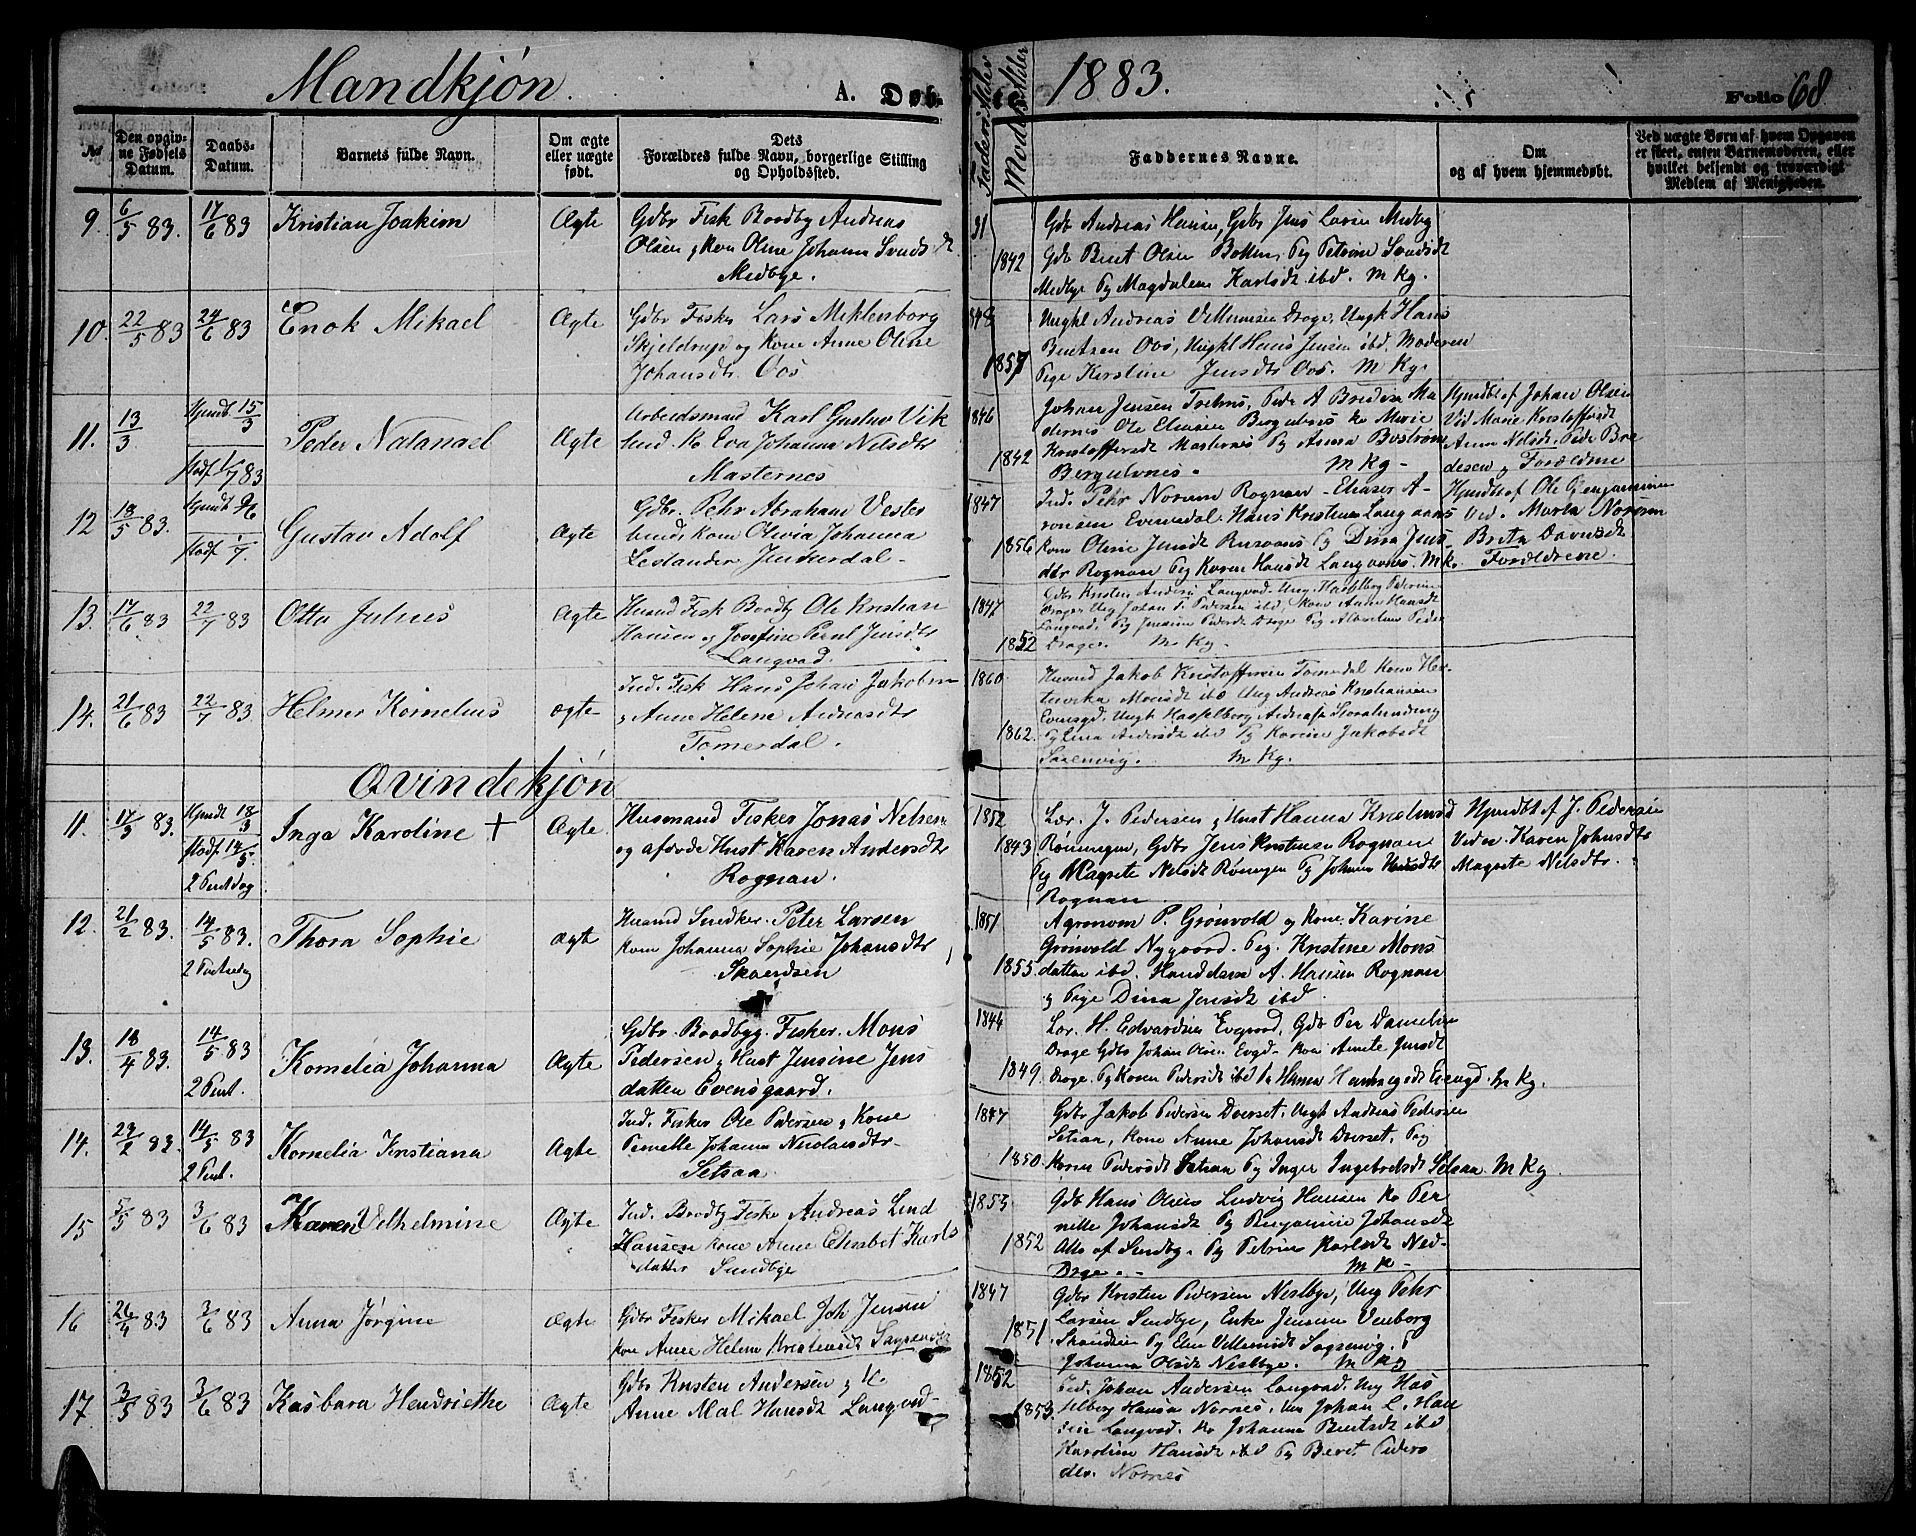 Mandkjøn. A. Døbte 1883. Folio 68
№
Den opgivne Fødsels Datum.
Daabs-Datum.
Barnets fulde Navn.
Om ægte eller uægte født.
Dets Forældres fulde Navn, borgerlige Stilling og Opholdssted.
Faderns Alder
Moderns Alder
Faddernes Navne.
Om og af hvem hjemmedøbt.
Ved uægte Børn af hvem Opgaven er skeet, enten Barnemoderen, eller hvilket besendt og troværdigt Medlem af Menigheden.
9. 6/5 83. 17/6 83 Kristian Joakim Ægte
Gdbr Fisk Baadby Andreas
Olsen og kon Oline Johanna Svends dt
Medbye.
31
1842
Gdb Andreas Hansen, Gdbr Jens Larsen Medby
Gdb Bent Olsen Botten, Pg Petrine Svendsdt
Medbye Pg Magdalena Karlsdt ibd. M Kg.
10. 22/5 83 24/6 83 Enok Mikael Ægte
Gdbr Fisker Lars Meklenborg
Skjeldrup og Kone Anne Oline
Johansdtr Oos
48
1857
Ungkl Andreas Villumsen Drage, Ungk Hans
Bentsen Oos, Ungkl Hans Jensen ibd. Moderen
Pige Kirstine Jensdtr Oos. M Kg.
11. 13/3 Hjemdt 15/3 Stadf 1/7 83 Peder Natanael Ægte
Arbeidsmand Karl Gustav Vik
lund. Ko Eva Johanna Nelsdtr
Masternes
1846
1842
Johan Jensen Tselnes, Peder A Bredesen Ma
dernes Ole Eliasen Bergulvnes Ko Marie
Kristoffersdt Masternes Pg Anna Bostrøm
Bergulvnes. M Kg -
Hjemdbt af Johan Olsen
Vid Marie Kristoffersdt
Anna Nelsdt, Peder Bre
desen og Forældrene
12 18/5 83. Hjemdt Stadf 1/7. Gustav Adolf Ægte
Gdbr. Pehr Abraham Vester
lund, kone Olivia Johanna
Leslander Junkerdal -
1847
1856
Ind. Pehr Norum Rognan - Eliaser A-
ronsen Evensdal. Hans Kristian Langaanes
kone Oline Jensdt Rusaanes Pg Dina Jens
dtr Rognan Pg Karen Hansdt Langaanes. M K.
Hjemdbt af Ole Benjaminsen
Vid. Marta Norum
Brita Davidsdt
Forældrene.
13. 17/6 83 22/7 83 Otto Julius Ægte
Husmd Fisk Baadby Ole Kristian
Hansen og Josefine Pernl Jensdtr
Langvad.
1847
1852
Gdbr Kristen Andersen Langvad. Ung Hasselberg Pedersen
Drage, Ung Johan P. Pedersen ibd, kone Anne Hansdt
Langvad, Pg Jensine Pedersdt Drage Pg Albertine Peder
Drage. M Kg -
14. 21/6 83 22/7 83 Helmer Kornelius ægte
Ind. Fisk Hans Johan Jakobsen
og Anne Helene Andreasdtr
Tomerdal.
1860
1862.
Husmd Jakob Kristoffersen Tomerdal kone Hen-
dervika Monsdt ibd Ung Andreas Kristiansen
Evensgd. Ungk Hasselberg Andreas Storalmenning
Pg Lina Andersdt ibd Pg Karine Jakobsdt
Saxenvig. M Kg.
Qvindekjøn
11. 17/3 83. Hjemdt 18/3 Stadf. 14/5 2 Pintsdag Inga Karoline + Ægte
Husmand Fisker Jonas Nelsen
og afdøde Hust Karen Andersdtr
Rognan.
1852
1843
Lær. J. Pedersen og Hust Hanna Knislund
Røningen, Gdbr Jens Kristensen Rognan
Pg Magrete Nelsdt Røningen Pg Johanna Hansdtr
Rognan
Hjemdbt af J. Pedersen
Viden Karen Johnsdtr
Magrete Nilsdtr.
12. 21/2 83. 14/5 83. 2 Pintsdg Thora Sophie Ægte
Husmd Snedker. Peter Larsen
kone Johanna Sophie Johansdtr
Skandsen
1851
1855.
Agronom P. Grønvold og kone Karine
Grønvold Nygaard. Pig. Kristine Mons
datter ibd. Handelsm A. Hansen Rognan
og Pige Dina Jensdt ibd.
13. 18/4 83. 14/5 83 2 Pint. Kornelia Johanna Ægte
Gdbr. Baadbyg. Fisker. Mons
Pedersen og Hust Jensine Jens
datter Evensgaard.
1844
1849.
Lær. H. Edvardsen Evgaad. Gdb Per Danielsen
Drage Gdbr Johan Olsen Evgd- kone Anete Jensdt
Drage. Pg Karen Pedersdt ibd Pg Hanna Henriksdt Evensgd. M Kg.
14. 24/2 83. 14/5 83 2 Pint. Kornelia Kristiana Ægte
Ind. Fisker Ole Pedersen og Kone
Pernelle Johanna Nicolaisdtr -
Setsaa.
1847
1850.
Gdbr Jakob Pedersen Dverset, Ungk Andreas Pedersen
Setsaa, kone Anne Johansdt Dverset, Pig
Karen Pedersdt Setsaa Pg Inger Ingebretsdt Setsaa. M Kg.
15 5/5 83 3/6 83 Karen Velhelmine Ægte
Ind. Baadby Fisker Andreas Lind
Hansen kone Anne Elisabet Karls
datter Sundbye
1853.
1852
Gdb Hans Olsen Ludvig Hansen Ko Per
nille Johansdt Pg Benjamine Johansdt
Alle af Sundby. Pg Petrine Karlsdt Ned-
Drage. - M K -
16 26/4 83 3/6 83 Anna Jørgine Ægte
Gdbr Fisker Mikael Joh. Jensen
kone Anne Helene Kristensdt Saxenvig
1847
1851.
Gdbr Kristen Pedersen Nestbye, Ung Pehr
Larsen Sundbye, Enke Jensine Venborg
Skandsen Pg Elen Villumsdt Saxenvig. P
Johanna Olsdt Nestbye. M Kg
17 3/5 83 3/6 83 Kasbara Hendriethe Ægte
Gdbr Kristen Andersen og K.
Anne Mal Hansdt Langvad -
1852
1853.
Ind. Johan Andersen Langvad, Ung Has
selberg Hansen Nornes, Ung Johan L. Han
sen Langvad, Ko Johanna Bentsdt ibd
Karoline Hansdt ibd Pg Beret Peders
dtr. Nornes